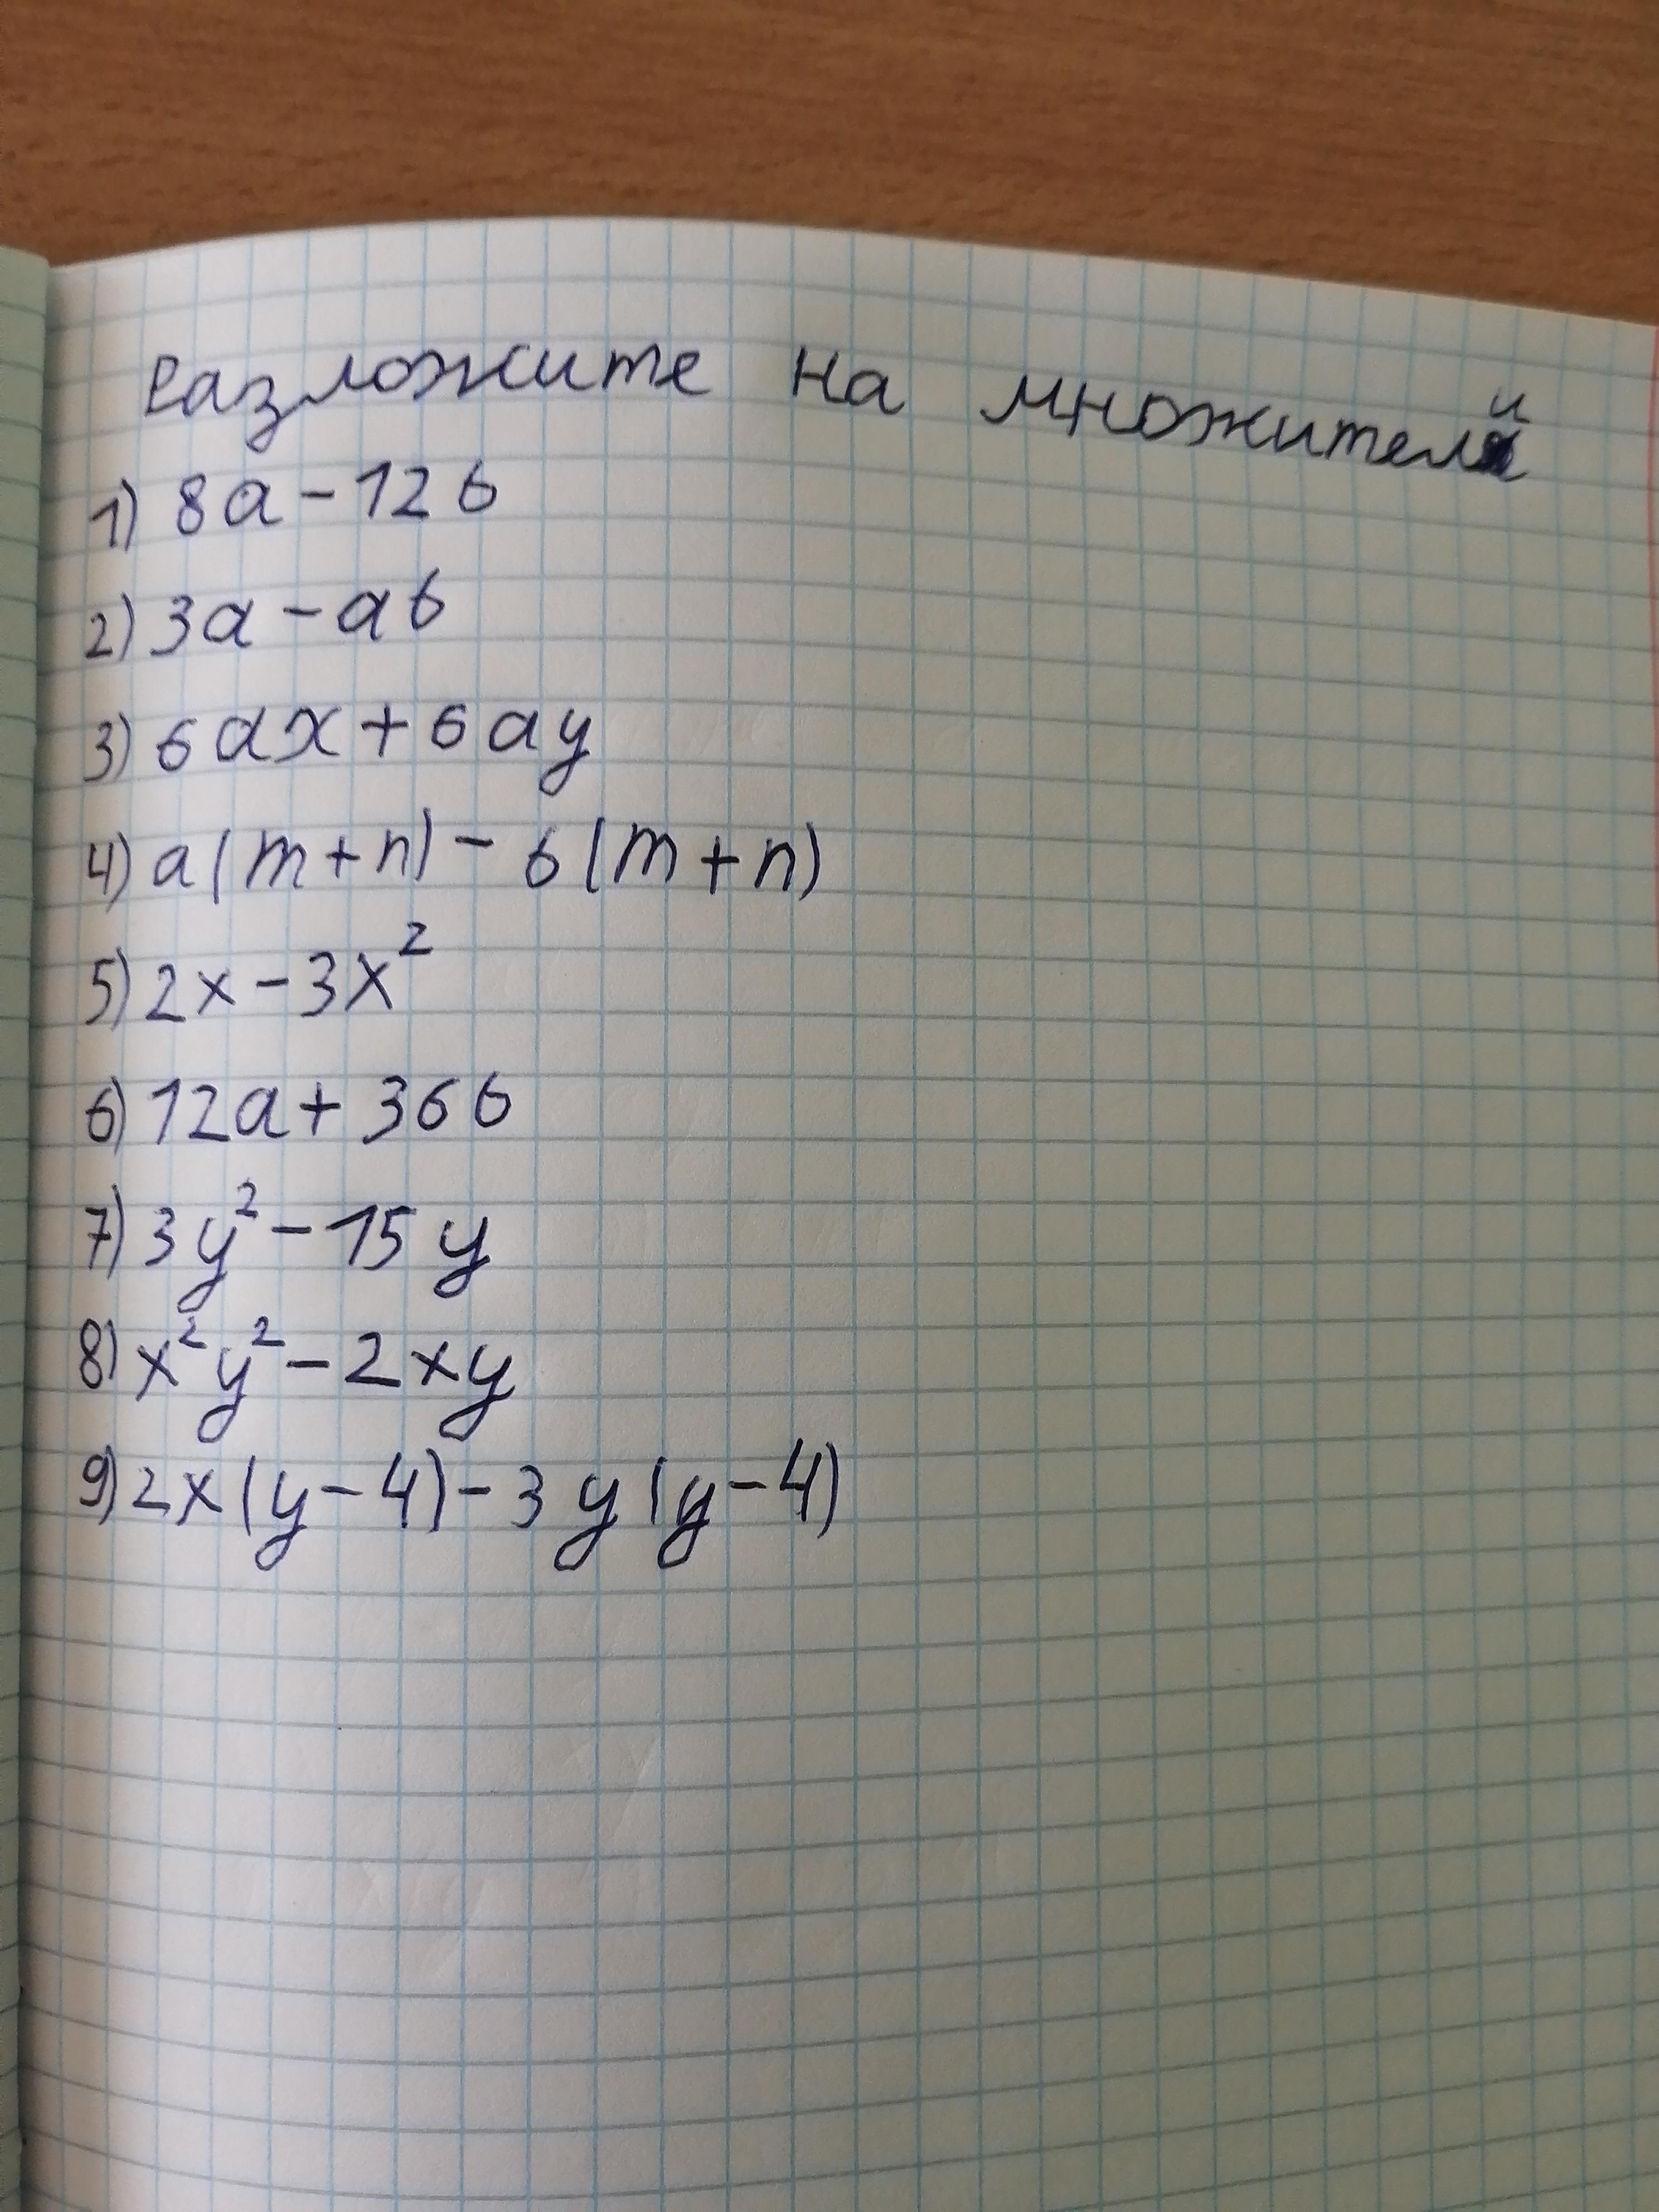 Разложите на множители
1) 8a - 12b
2) 3a - ab
3) 6ax + 6ay
4) a(m+n) - b(m+n)
5) 2x - 3x²
6) 12a + 36b
7) 3y² - 15y
8) x²y² - 2xy
9) 2x(y-4) - 3y(y-4)